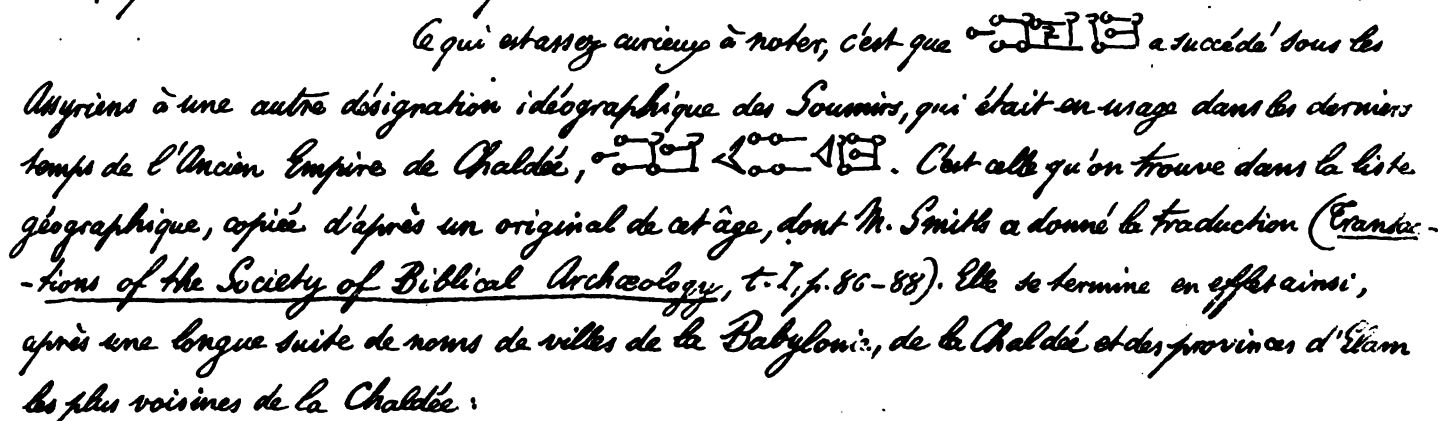 Ce qui est assez curieux à noter, c'est que a succédé sous les
Assyriens à une autre désignation idéographique des Soumirs, qui était en usage dans les derniers
temps de l'Ancien Empire de Chaldée, . C'est celle qu'on trouve dans la liste
géographique, copiée d'après un original de cet âge, dont M. Smith a donné la traduction (Transac-
-tions of the Society of Biblical Archæology, t. I, p. 86-88). Elle se termine en effet ainsi,
après une longue suite de noms de villes de la Babylonie, de la Chaldée et des provinces d'Elam
les plus voisines de la Chaldée :